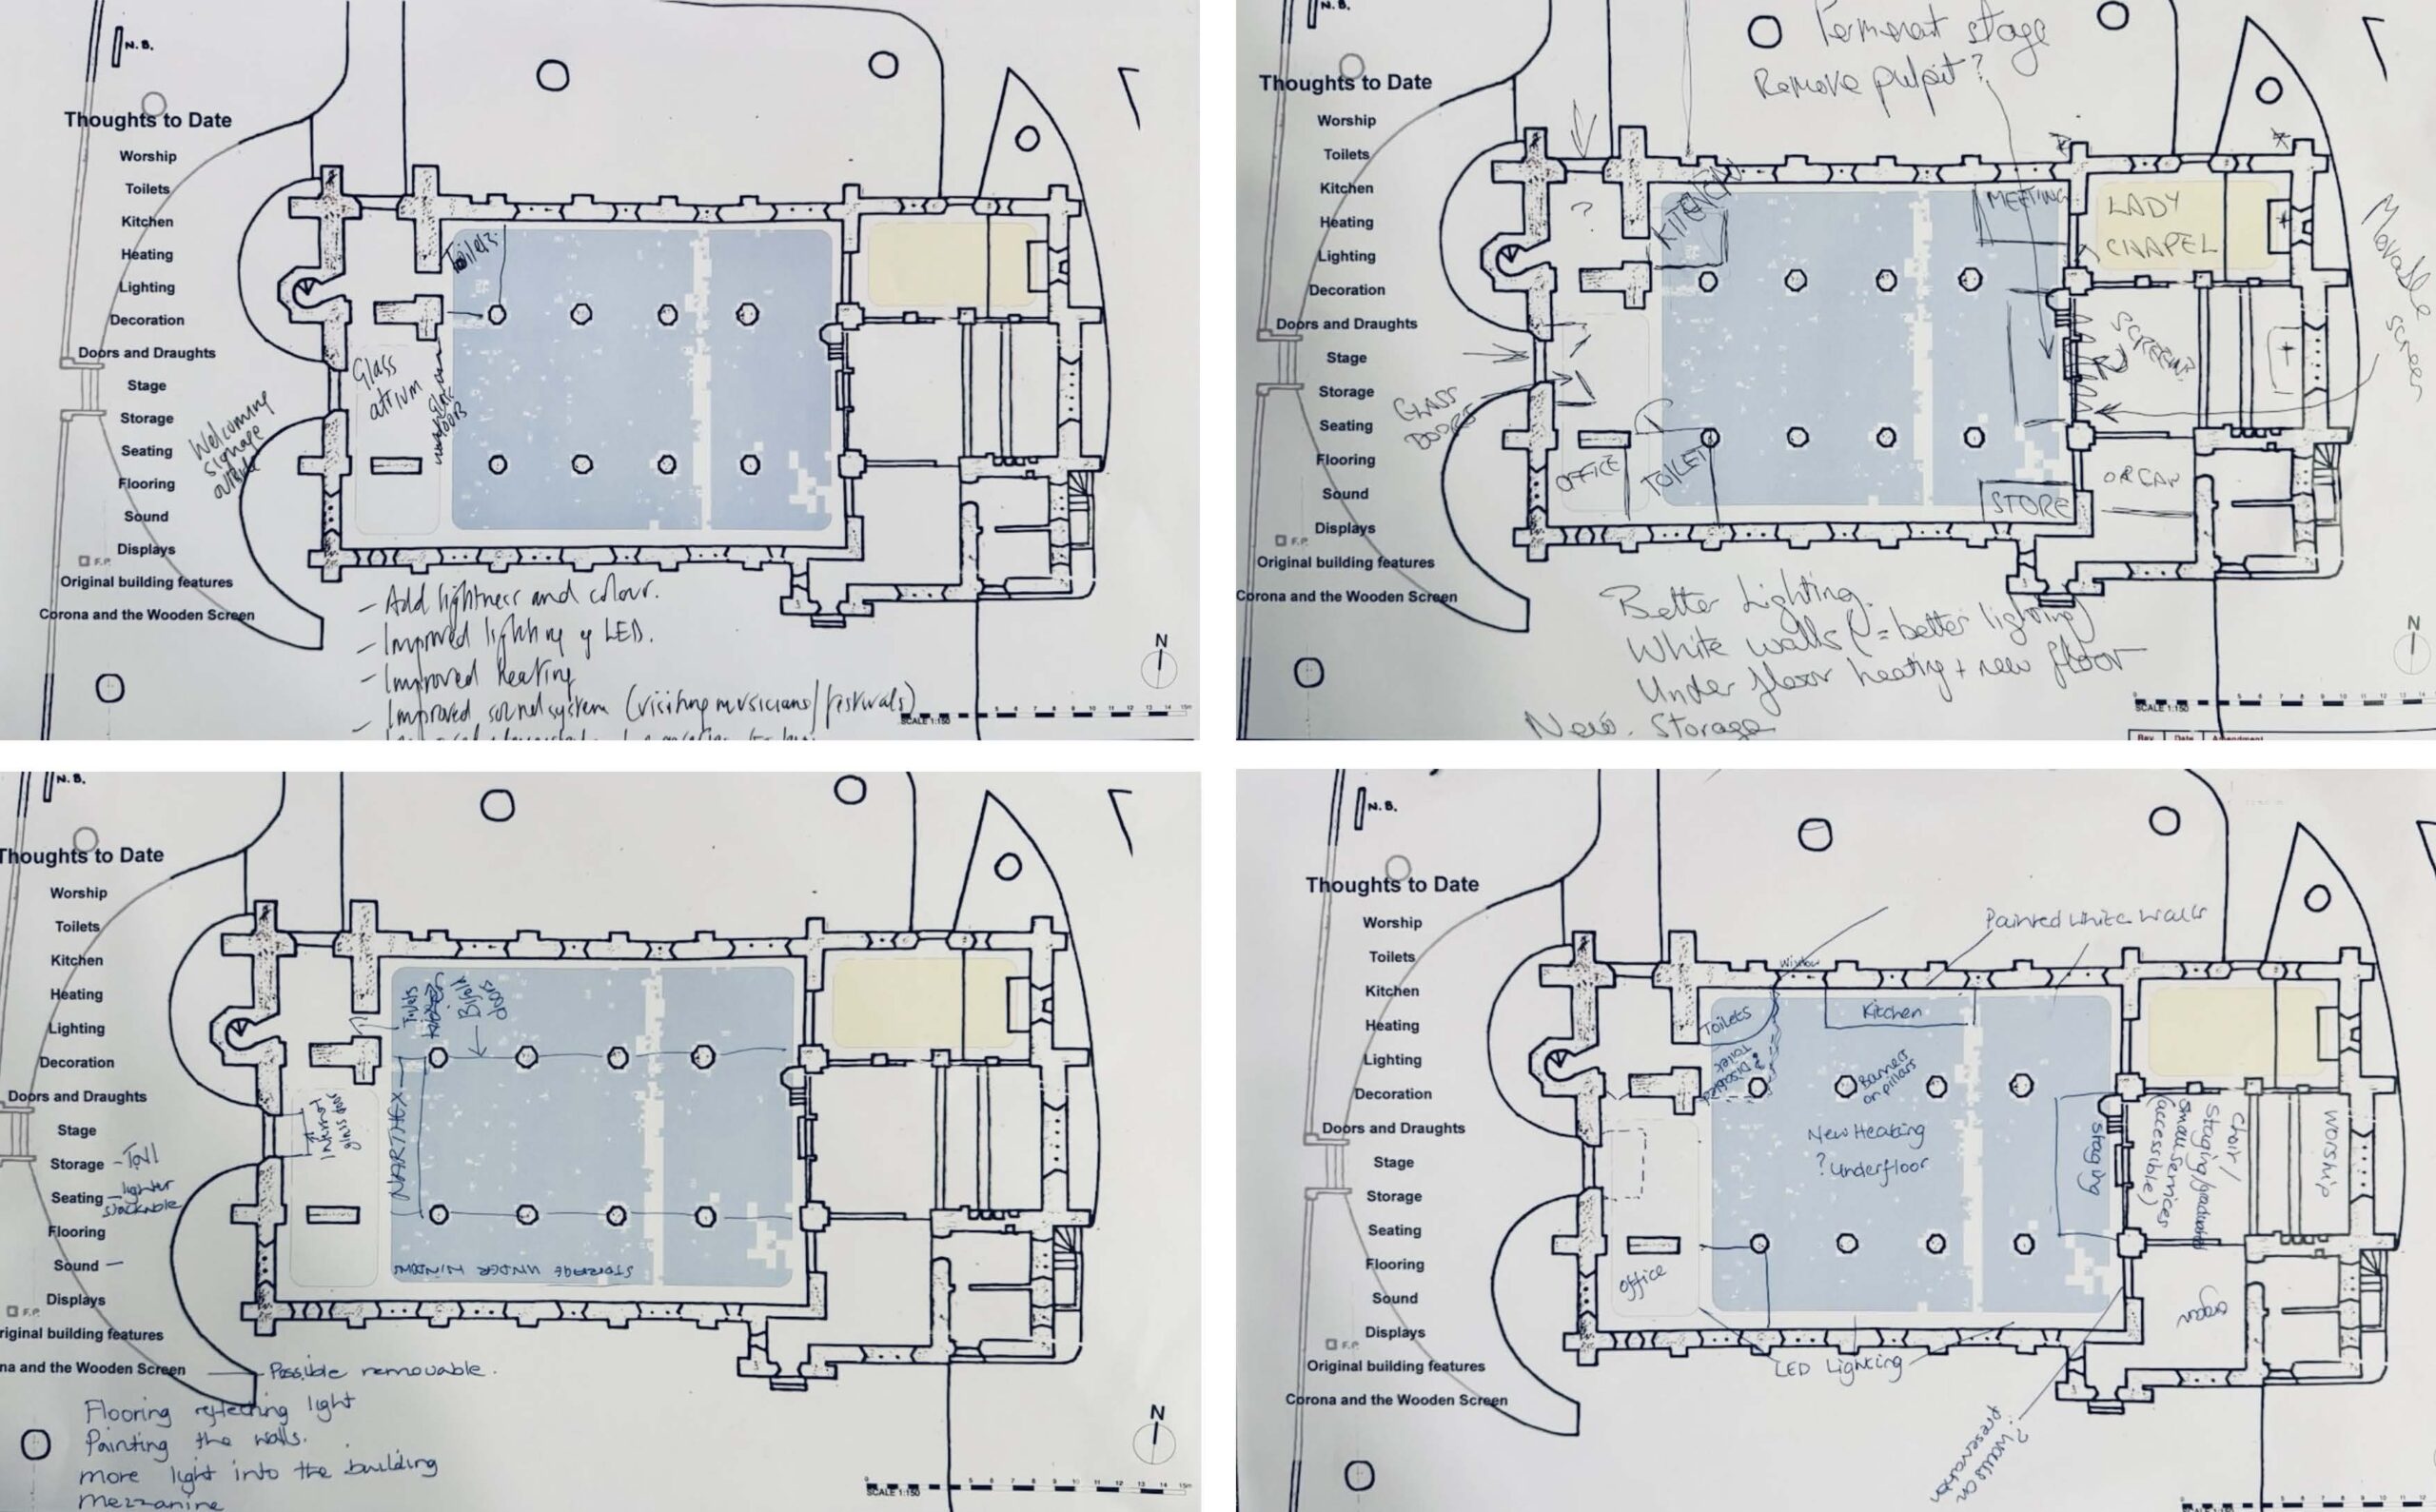 N. B.
Thoughts to Date
Worship
Toilets
Kitchen
Heating
Lighting
Decoration
Doors and Draughts
Stage
Storage
Seating
Flooring
Sound
Displays
F.P.
Original building features
Corona and the Wooden Screen
Toilets
Glass
atrium
Welcoming
signage
outside
- Add lightness and colour.
- Improved lighting eg LED.
- Improved heating
- Improved sound system (visiting musicians/festivals)
N
SCALE 1:150
N. B.
Permenant stage
Remove pulpit?
Thoughts to Date
Worship
Toilets
Kitchen
Heating
Lighting
Decoration
Doors and Draughts
Stage
Storage
Seating
Flooring
Sound
Displays
F.P.
Original building features
Corona and the Wooden Screen
?
KITCHEN
MEETING
LADY
CHAPEL
SCREEN
Movable
screen
GLASS
DOORS
OFFICE
TOILET
STORE
ORGAN
Better Lighting.
White walls (= better lighting)
Under floor heating + new floor
New. Storage
N
SCALE 1:150
Rev Date Amendment
N. B.
Thoughts to Date
Worship
Toilets
Kitchen
Heating
Lighting
Decoration
Doors and Draughts
Stage
Storage - Tall
Seating - lighter
stackable
Flooring
Sound -
Displays
F.P.
riginal building features
na and the Wooden Screen - Possible removable.
Toilets
Bifold
doors
NARTHEX
Internal
glass door
STORAGE UNDER WINDOWS
Flooring reflecting light
Painting the walls.
more light into the building
Mezzanine
N
SCALE 1:150
N. B.
Thoughts to Date
Worship
Toilets
Kitchen
Heating
Lighting
Decoration
Doors and Draughts
Stage
Storage
Seating
Flooring
Sound
Displays
F.P.
Original building features
Corona and the Wooden Screen
Painted white walls
Window
Toilets
? Disabled
Toilet
Kitchen
Banners
on pillars
New Heating
? Underfloor
Staging
Choir/
Staging/graduated
small services
(accessible)
Worship
Office
organ
LED Lighting
? walls on
preservation